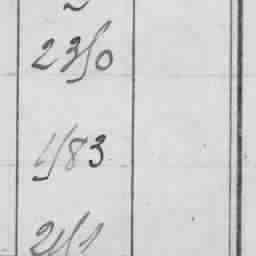 23/0
4/83
24/1